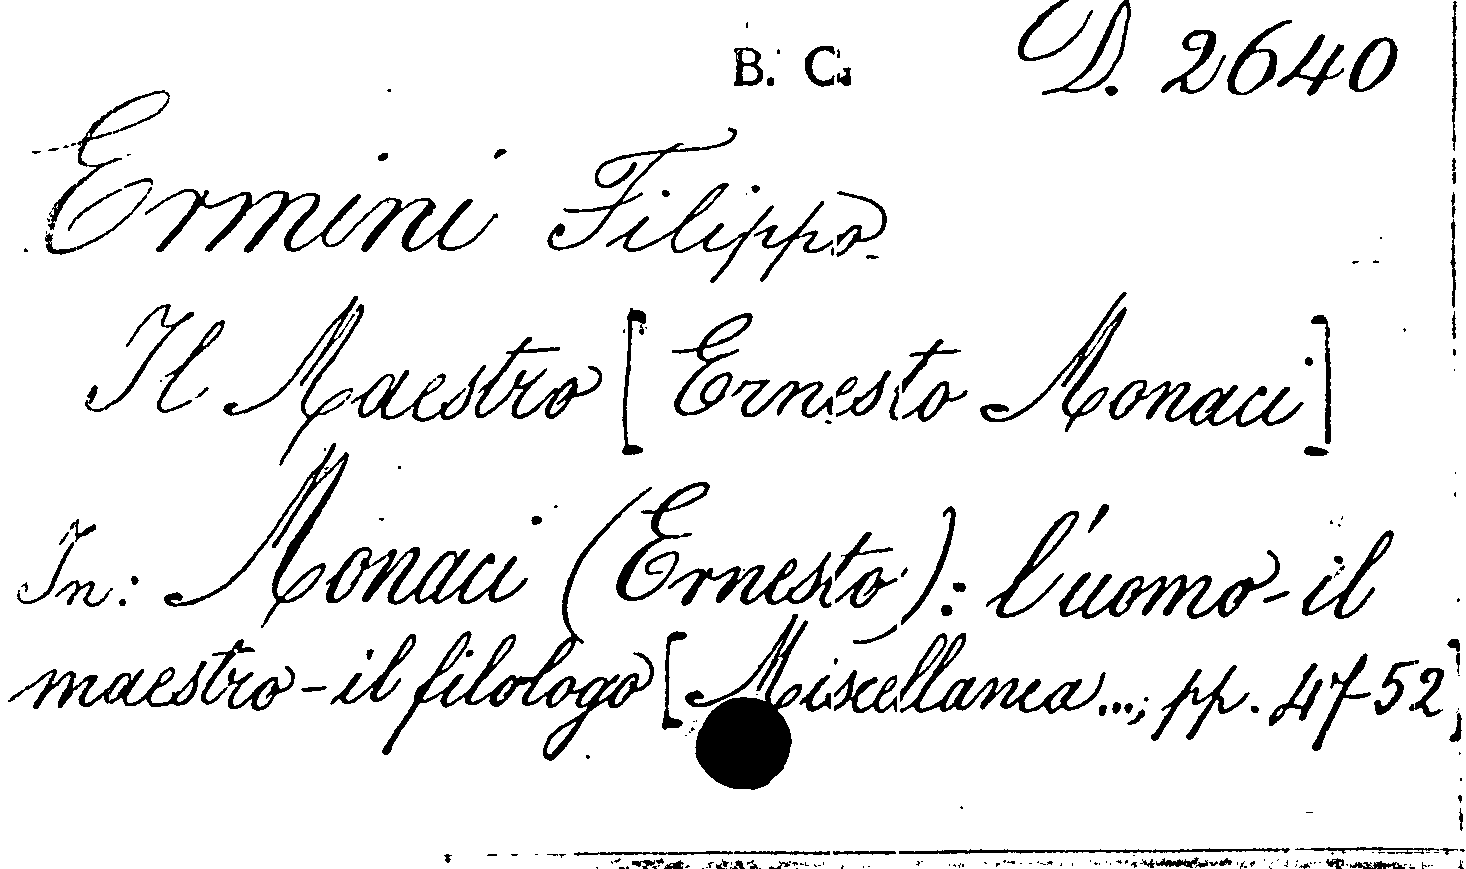 B. C. D. 2640
Ermini Filippo
Il Maestro [Ernesto Monaci]
In: Monaci (Ernesto): l'uomo - il
maestro - il filologo [Miscellanea..., pp. 47-52]